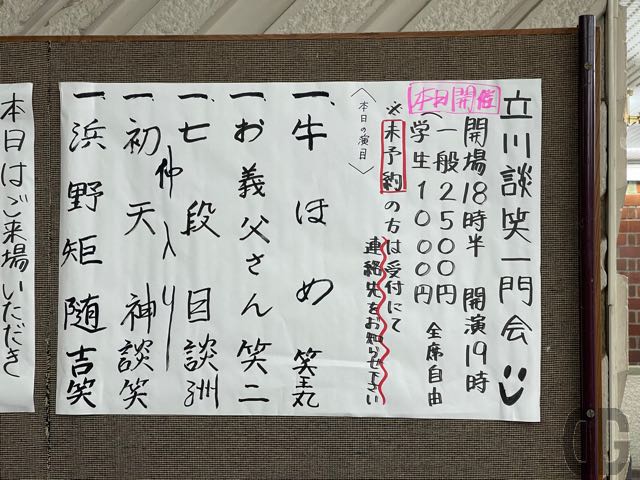 立川談笑一門会
開場18時半 開演19時
本日開催
(一般2500円
学生1000円 全席自由
※未予約の方は受付にて
連絡先をお知らせ下さい
〈本日の演目〉
一、牛ほめ 笑王丸
一、お義父さん 笑二
一、七段目 談洲
仲入り
一、初天神 談笑
一、浜野矩随 吉笑
本日はご来場いただき